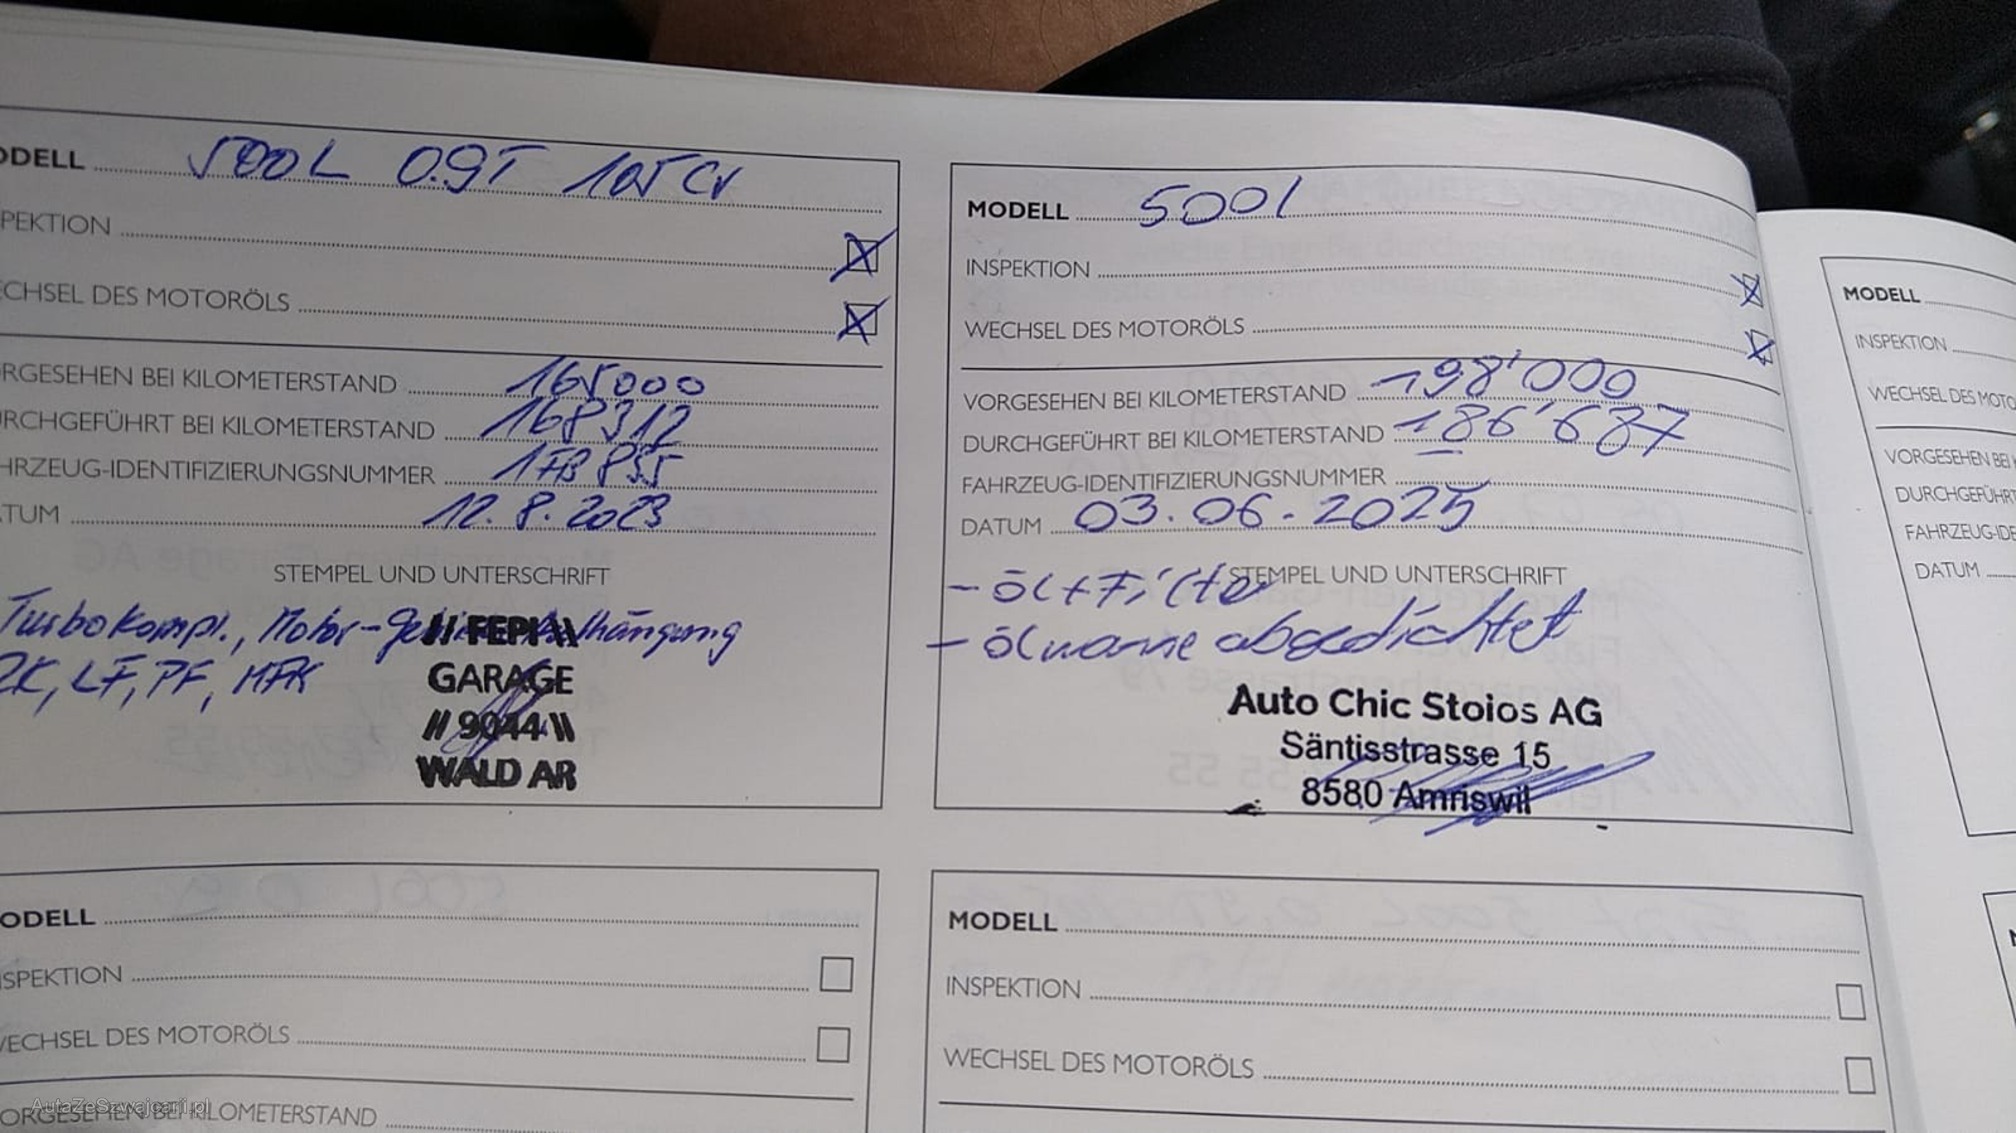 ODELL 500L 0.9T 105 CV
PEKTION
CHSEL DES MOTORÖLS
RGESEHEN BEI KILOMETERSTAND 165000
RCHGEFÜHRT BEI KILOMETERSTAND 168312
HRZEUG-IDENTIFIZIERUNGSNUMMER
TUM 12.8.2023
STEMPEL UND UNTERSCHRIFT
Turbo kompl., Motor-
ZK, LF, PF, MFK
// FEPI \\
GARAGE
// 9044 \\
WALD AR
MODELL 500l
INSPEKTION
WECHSEL DES MOTORÖLS
VORGESEHEN BEI KILOMETERSTAND 198'000
DURCHGEFÜHRT BEI KILOMETERSTAND 186'637
FAHRZEUG-IDENTIFIZIERUNGSNUMMER
DATUM 03.06.2025
STEMPEL UND UNTERSCHRIFT
- Öl + Filter
- Ölwanne abgedichtet
Auto Chic Stoios AG
Säntisstrasse 15
8580 Amriswil
MODELL
INSPEKTION
WECHSEL DES MOTO
VORGESEHEN BEI
DURCHGEFÜHRT
FAHRZEUG-IDE
DATUM
ODELL
SPEKTION
ECHSEL DES MOTORÖLS
ORGESEHEN BEI KILOMETERSTAND
MODELL
INSPEKTION
WECHSEL DES MOTORÖLS
AutaZeSzwajcarii.pl